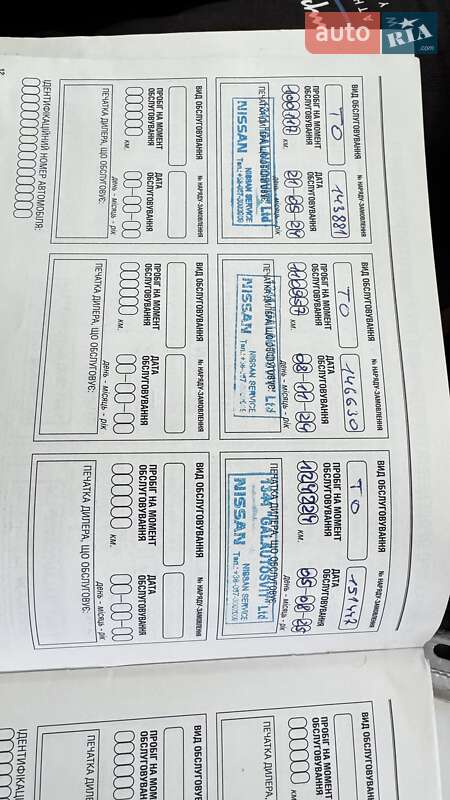 auto RIA.com
ВИД ОБСЛУГОВУВАННЯ
№ НАРЯДУ-ЗАМОВЛЕННЯ
ТО
143881
ПРОБІГ НА МОМЕНТ ОБСЛУГОВУВАННЯ
ДАТА ОБСЛУГОВУВАННЯ
100107
км.
21-05-24
день - місяць - рік
ПЕЧАТКА ДИЛЕРА, ЩО ОБСЛУГОВУЄ:
"GALAUTOSVIT" Ltd
NISSAN
NISSAN SERVICE
ВИД ОБСЛУГОВУВАННЯ
№ НАРЯДУ-ЗАМОВЛЕННЯ
ТО
146630
ПРОБІГ НА МОМЕНТ ОБСЛУГОВУВАННЯ
ДАТА ОБСЛУГОВУВАННЯ
км.
08-11-24
день - місяць - рік
ПЕЧАТКА ДИЛЕРА, ЩО ОБСЛУГОВУЄ:
Ltd
NISSAN
NISSAN SERVICE
ВИД ОБСЛУГОВУВАННЯ
№ НАРЯДУ-ЗАМОВЛЕННЯ
ТО
151442
ПРОБІГ НА МОМЕНТ ОБСЛУГОВУВАННЯ
ДАТА ОБСЛУГОВУВАННЯ
124224
км.
05-08-25
день - місяць - рік
ПЕЧАТКА ДИЛЕРА, ЩО ОБСЛУГОВУЄ:
"GALAUTOSVIT" Ltd
NISSAN
NISSAN SERVICE
ВИД ОБСЛУГОВУВАННЯ
№ НАРЯДУ-ЗАМОВЛЕННЯ
ПРОБІГ НА МОМЕНТ ОБСЛУГОВУВАННЯ
ДАТА ОБСЛУГОВУВАННЯ
км.
день - місяць - рік
ПЕЧАТКА ДИЛЕРА, ЩО ОБСЛУГОВУЄ:
ВИД ОБСЛУГОВУВАННЯ
№ НАРЯДУ-ЗАМОВЛЕННЯ
ПРОБІГ НА МОМЕНТ ОБСЛУГОВУВАННЯ
ДАТА ОБСЛУГОВУВАННЯ
км.
день - місяць - рік
ПЕЧАТКА ДИЛЕРА, ЩО ОБСЛУГОВУЄ:
ВИД ОБСЛУГОВУВАННЯ
№ НАРЯДУ-ЗАМОВЛЕННЯ
ПРОБІГ НА МОМЕНТ ОБСЛУГОВУВАННЯ
ДАТА ОБСЛУГОВУВАННЯ
км.
день - місяць - рік
ПЕЧАТКА ДИЛЕРА, ЩО ОБСЛУГОВУЄ:
ІДЕНТИФІКАЦІЙНИЙ НОМЕР АВТОМОБІЛЯ:
12
ВИД ОБСЛУГОВУВАННЯ
ПРОБІГ НА МОМЕНТ ОБСЛУГОВУВАННЯ
ПЕЧАТКА ДИЛЕРА,
ВИД ОБСЛУГОВУВАННЯ
ПРОБІГ НА МОМЕНТ ОБСЛУГОВУВАННЯ
ПЕЧАТКА ДИЛЕРА